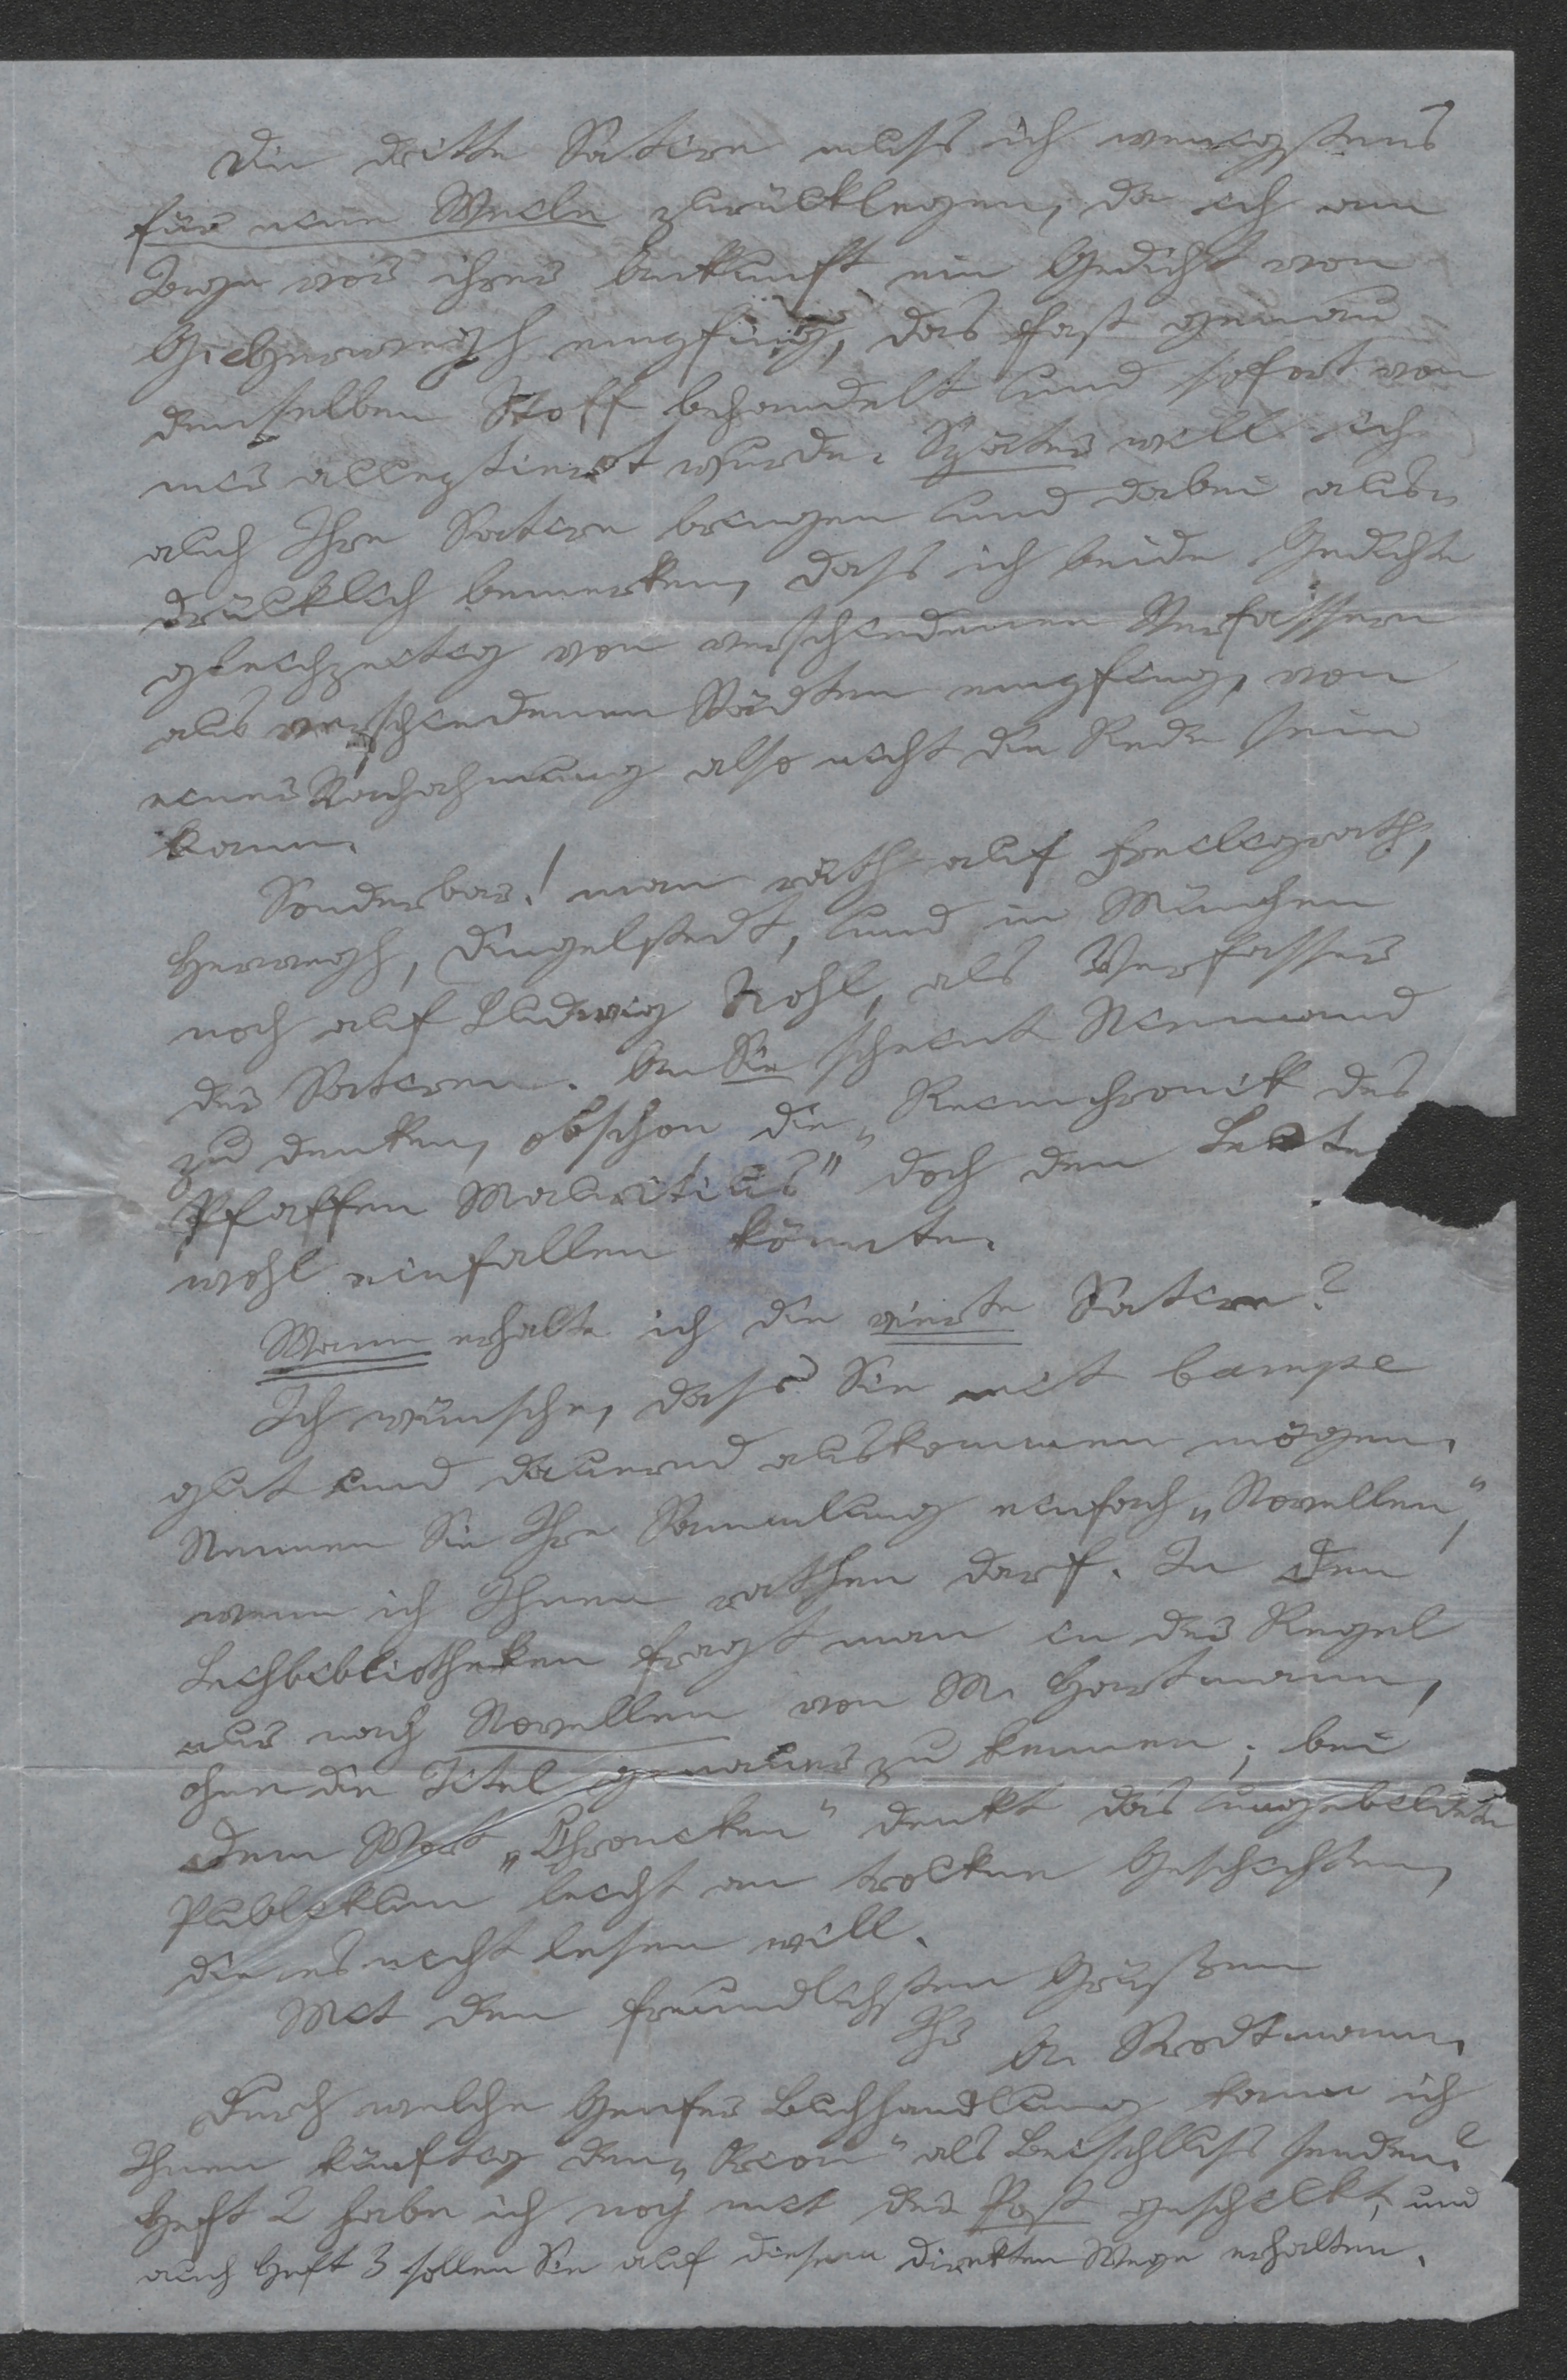 Die dritte Satire muss ich wenigstens
für eine Weile zurücklegen, da ich am
Tage vor ihrer Ankunft ein Gedicht von
G. Herwegh empfing, das fast genau
denselben Stoff behandelt und sofort von
mir acceptiert wurde. Später will ich
auch Ihre Satire bringen und dabei aus-
drücklich bemerken, dass ich beide Gedichte
gleichzeitig von verschiedenen Verfassern
aus verschiedenen Städten empfing, von
einer Nachahmung also nicht die Rede sein
kann.
Sonderbar! man räth auf Freiligrath,
Herwegh, Dingelstedt, und in München
noch auf Ludwig Nohl, als Verfasser
der Satiren. An Sie scheint Niemand
zu denken, obschon die „Reimchronik des
Pfaffen Mauritius" doch den Leute
wohl einfallen könnte.
Wann erhalte ich die vierte Satire?
Ich wünsche, dass Sie mit Campe
gut und dauernd auskommen mögen.
Nennen Sie Ihre Sammlung einfach „Novellen",
wenn ich Ihnen rathen darf. In den
Leihbibliotheken fragt man in der Regel
nur nach Novellen von M. Hartmann,
ohne die Titel genauer zu kennen; bei
dem Wort „Chroniken" denkt das ungebildete
Publikum leicht an trockne Geschichten,
die es nicht lesen will.
Mit den freundlichsten Grüßen
Ihr A. Strodtmann.
Durch welche Genfer Buchhandlung kann ich
Ihnen künftig den „Orion" als Beischluss senden?
Heft 2 habe ich noch mit der Post geschickt, und
auch Heft 3 sollen Sie auf diesem direkten Wege erhalten.